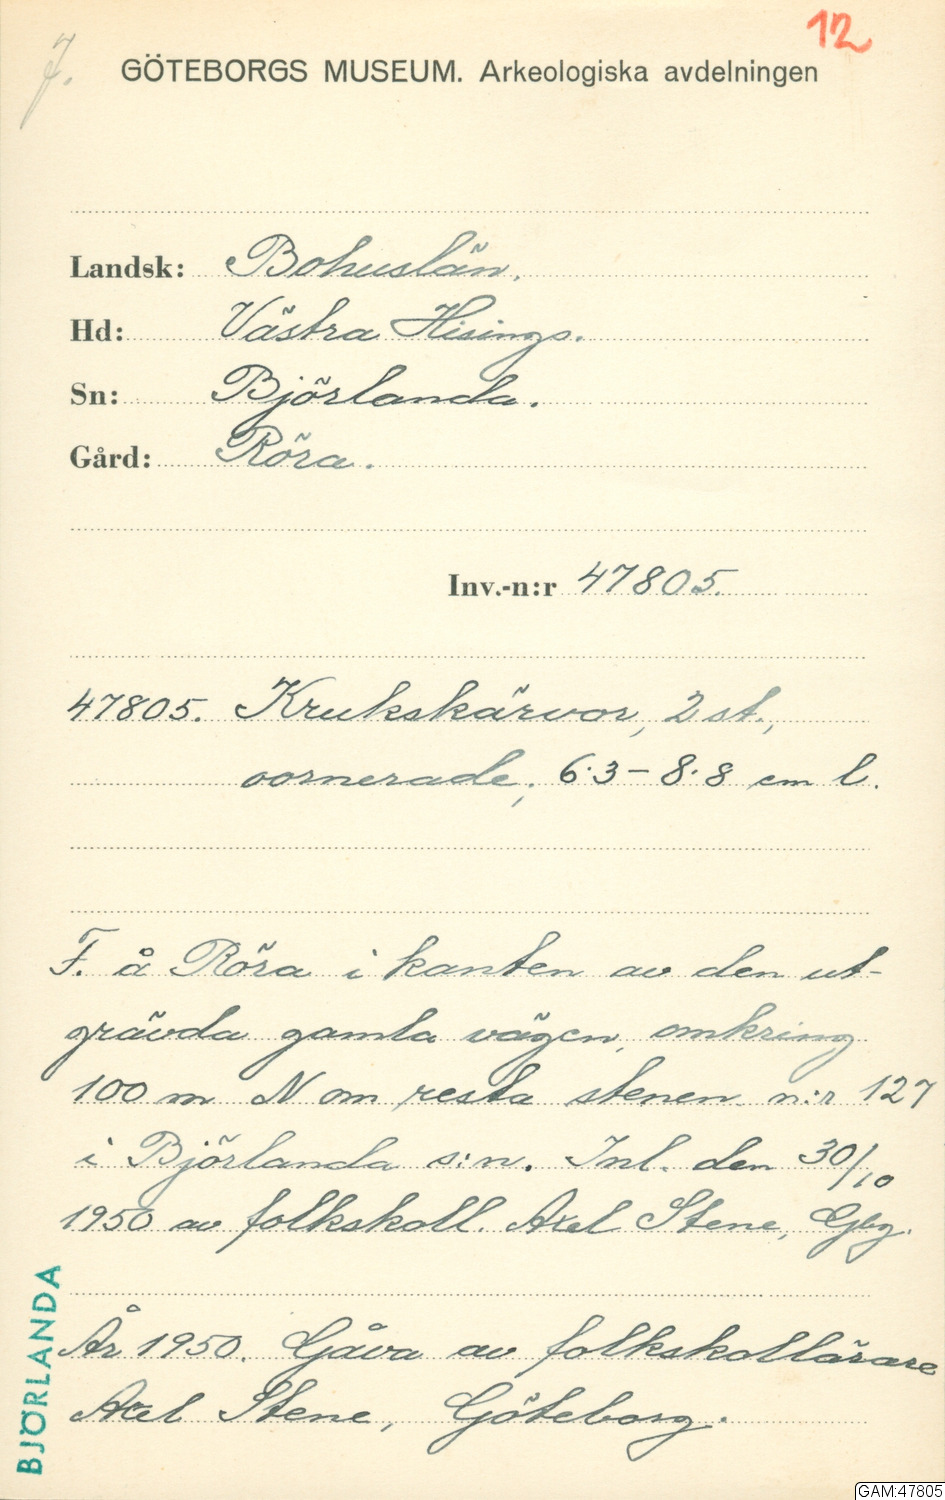 7.
12
GÖTEBORGS MUSEUM. Arkeologiska avdelningen
Landsk: Bohuslän.
Hd: Västra Hisings.
Sn: Björlanda.
Gård: Röra.
Inv.-n:r 47805.
47805. Krukskärvor, 2 st.,
oornerade; 6.3 - 8.8 cm l.
F. å Röra i kanten av den ut-
grävda gamla vägen, omkring
100 m N om resta stenen n:r 127
i Björlanda s:n. Inl. den 30/10
1950 av folkskoll. Axel Stene, Gbg.
År 1950. Gåva av folkskollärare
Axel Stene, Göteborg.
BJÖRLANDA
GAM:47805